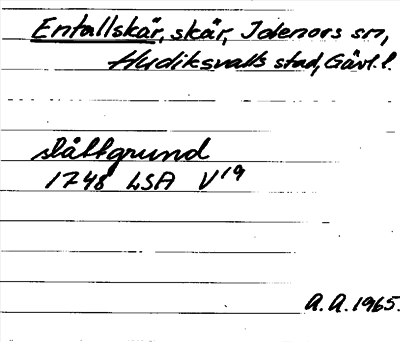 Entallskär, skär, Idenors sn,
Hudiksvalls stad, Gävl. l.
slåttgrund
1748 LSA V¹⁹
A.A. 1965.